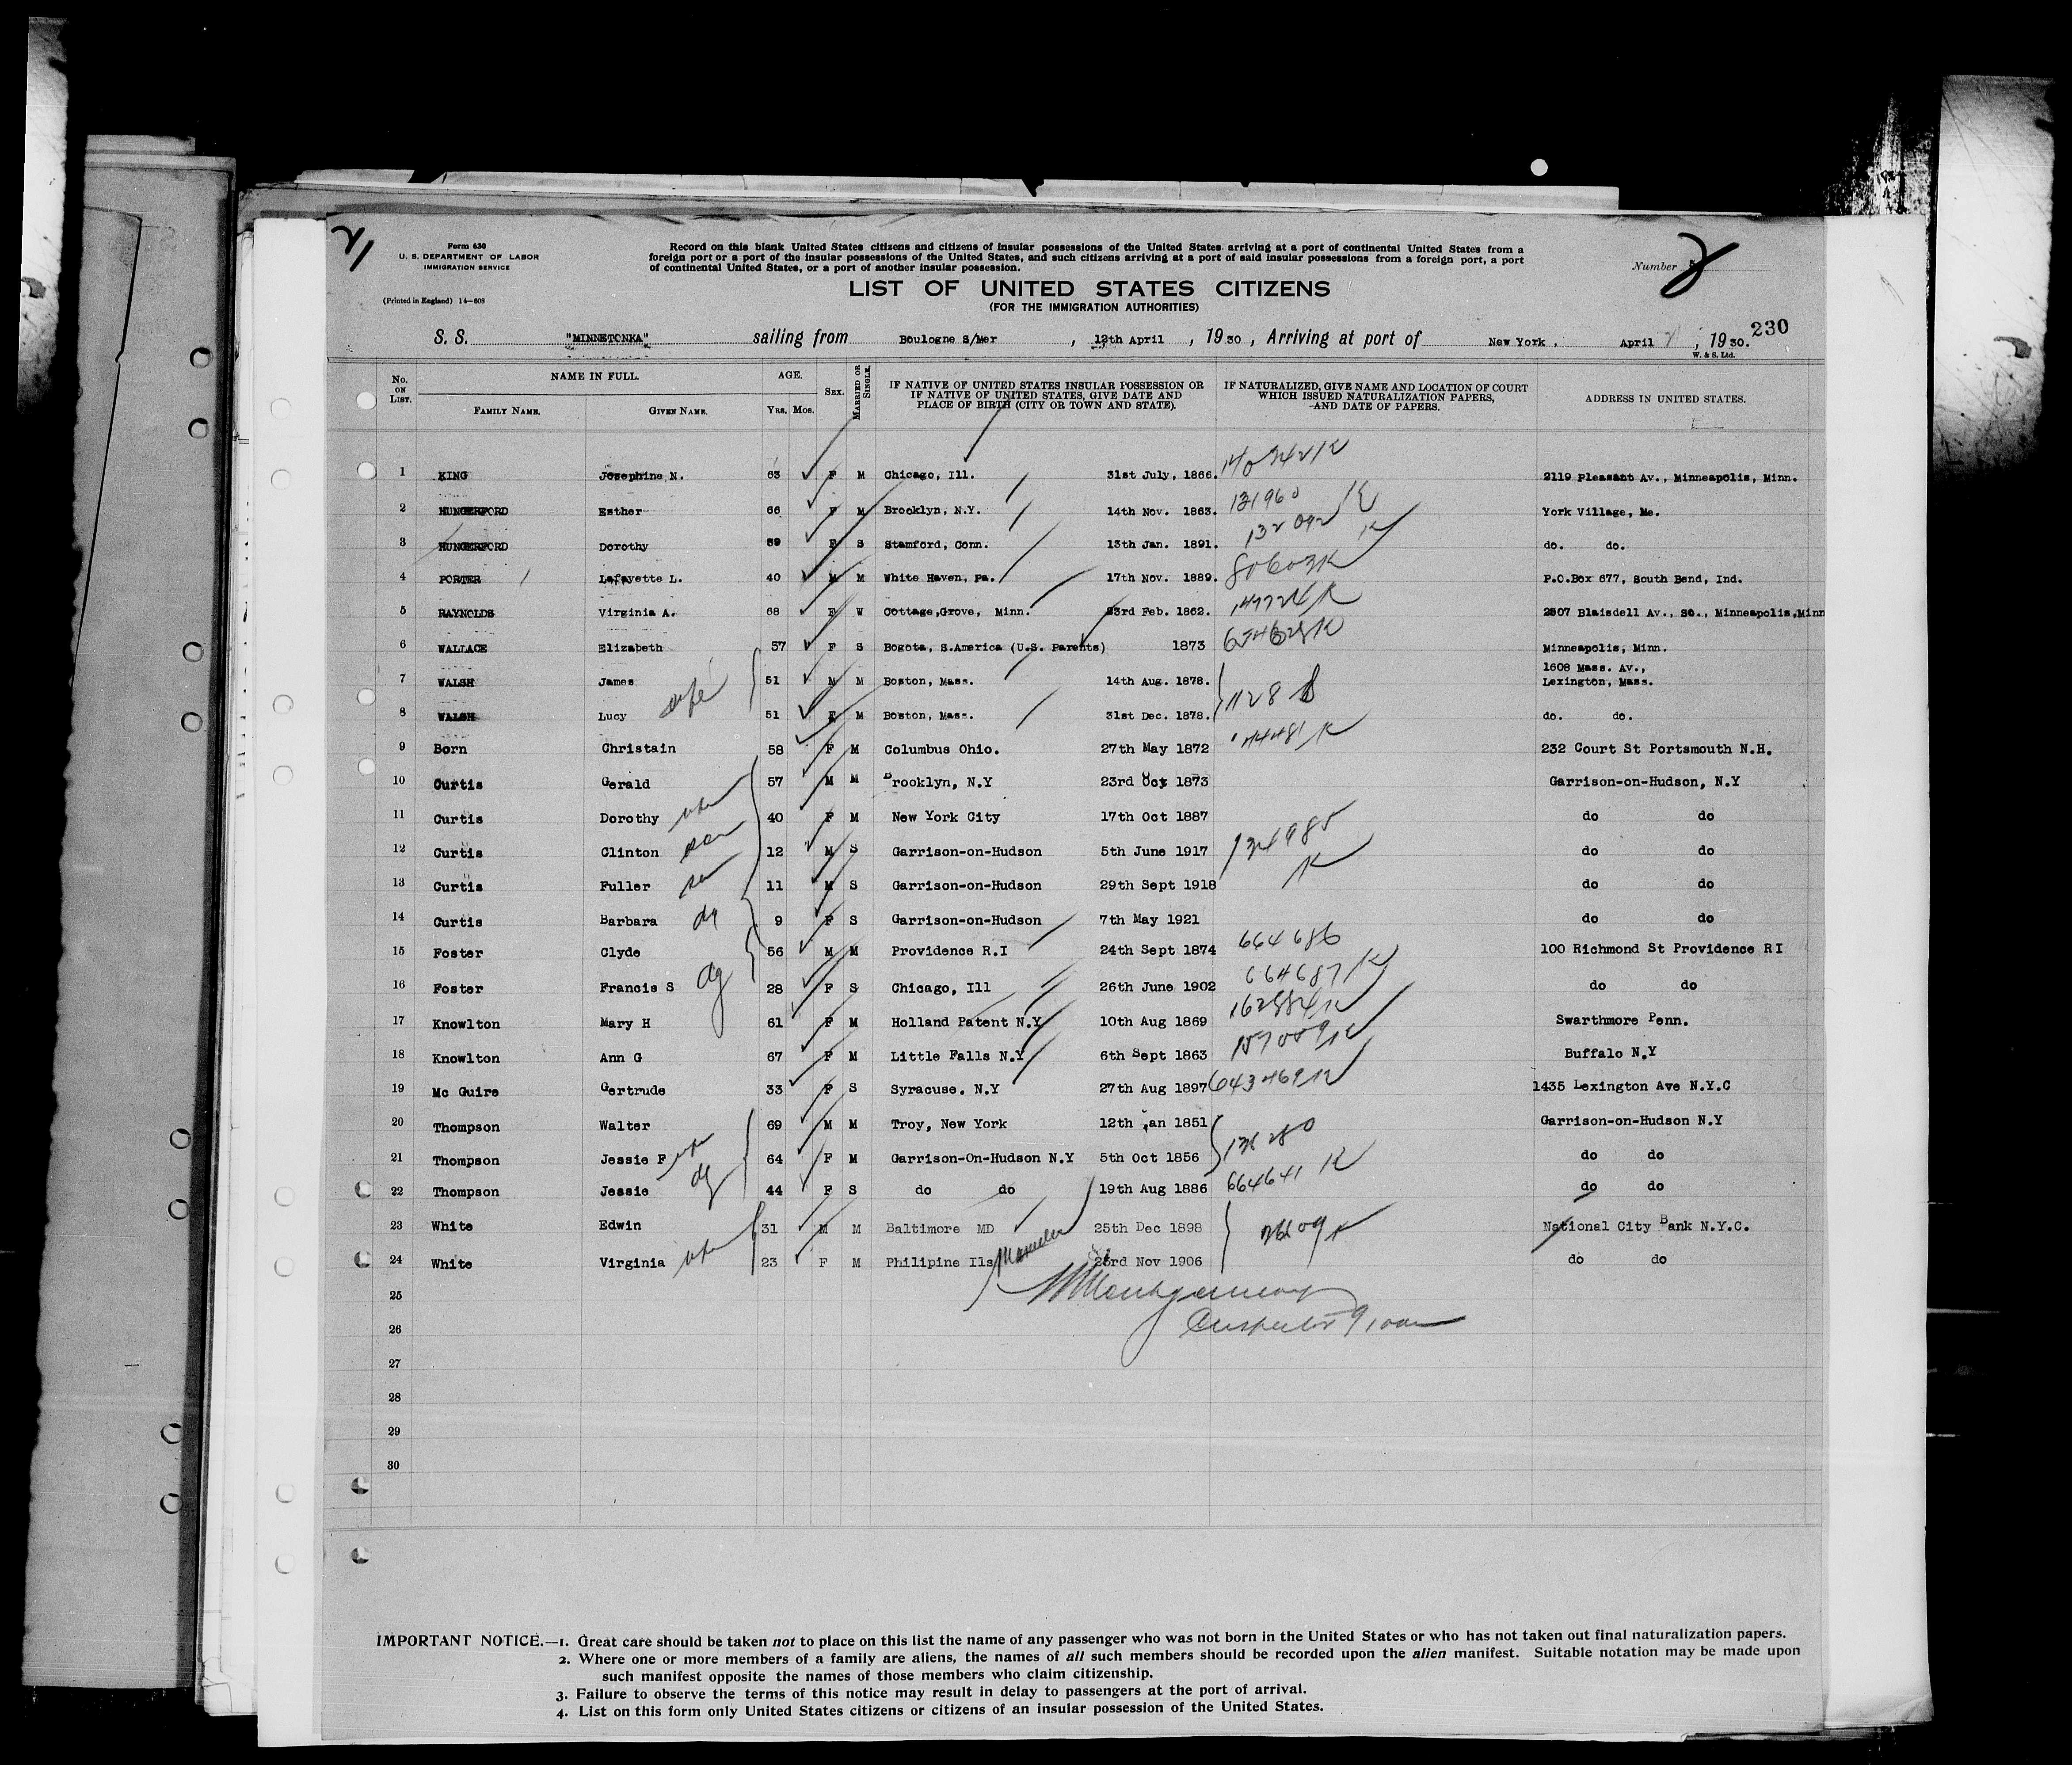 21
Form 630
U. S. DEPARTMENT OF LABOR
IMMIGRATION SERVICE
(Printed in England) 14—608
Record on this blank United States citizens and citizens of insular possessions of the United States arriving at a port of continental United States from a
foreign port or a port of the insular possessions of the United States, and such citizens arriving at a port of said insular possessions from a foreign port, a port
of continental United States, or a port of another insular possession.
Number
LIST OF UNITED STATES CITIZENS
(FOR THE IMMIGRATION AUTHORITIES)
230
S. S. "MINNETONKA" sailing from Boulogne S/Mer, 12th April, 1930, Arriving at port of New York, April, 1930.
W. & S. Ltd.
No. ON LIST. NAME IN FULL. FAMILY NAME. GIVEN NAME. AGE. YRS. MOS. SEX. MARRIED OR SINGLE. IF NATIVE OF UNITED STATES INSULAR POSSESSION OR IF NATIVE OF UNITED STATES, GIVE DATE AND PLACE OF BIRTH (CITY OR TOWN AND STATE). IF NATURALIZED, GIVE NAME AND LOCATION OF COURT WHICH ISSUED NATURALIZATION PAPERS, AND DATE OF PAPERS. ADDRESS IN UNITED STATES.
1 KING Josephine N. 63 F M Chicago, Ill. 31st July, 1866. 2119 Pleasant Av., Minneapolis, Minn.
2 HUNGERFORD Esther 66 F M Brooklyn, N.Y. 14th Nov. 1863. York Village, Me.
3 HUNGERFORD Dorothy 39 F S Stamford, Conn. 13th Jan. 1891. do. do.
4 PORTER Lafayette L. 40 M M White Haven, Pa. 17th Nov. 1889. P.O.Box 677, South Bend, Ind.
5 RAYNOLDS Virginia A. 68 F W Cottage,Grove, Minn. 23rd Feb. 1862. 2507 Blaisdell Av., So., Minneapolis,Minn
6 WALLACE Elizabeth 57 F S Bogota, S.America (U.S. Parents) 1873 Minneapolis, Minn.
7 WALSH James 51 M M Boston, Mass. 14th Aug. 1878. 1608 Mass. Av., Lexington, Mass.
8 WALSH Lucy wife 51 F M Boston, Mass. 31st Dec. 1878. do. do.
9 Born Christain 58 F M Columbus Ohio. 27th May 1872 232 Court St Portsmouth N.H.
10 Curtis Gerald 57 M M Brooklyn, N.Y 23rd Oct 1873 Garrison-on-Hudson, N.Y
11 Curtis Dorothy wife 40 F M New York City 17th Oct 1887 do do
12 Curtis Clinton son 12 M S Garrison-on-Hudson 5th June 1917 134985 K do do
13 Curtis Fuller son 11 M S Garrison-on-Hudson 29th Sept 1918 do do
14 Curtis Barbara dg 9 F S Garrison-on-Hudson 7th May 1921 do do
15 Foster Clyde 56 M M Providence R.I 24th Sept 1874 664686 100 Richmond St Providence RI
16 Foster Francis S dg 28 F S Chicago, Ill 26th June 1902 664687 K do do
17 Knowlton Mary H 61 F M Holland Patent N.Y 10th Aug 1869 Swarthmore Penn.
18 Knowlton Ann G 67 F M Little Falls N.Y 6th Sept 1863 Buffalo N.Y
19 Mc Guire Gertrude 33 F S Syracuse. N.Y 27th Aug 1897 643469 K 1435 Lexington Ave N.Y.C
20 Thompson Walter 69 M M Troy, New York 12th Jan 1851 Garrison-on-Hudson N.Y
21 Thompson Jessie F wife 64 F M Garrison-On-Hudson N.Y 5th Oct 1856 do do
22 Thompson Jessie dg 44 F S do do 19th Aug 1886 664641 K do do
23 White Edwin 31 M M Baltimore MD 25th Dec 1898 National City Bank N.Y.C.
24 White Virginia wife 23 F M Philipine Ils 23rd Nov 1906 do do
25
26 Inspector
27
28
29
30
IMPORTANT NOTICE.—1. Great care should be taken not to place on this list the name of any passenger who was not born in the United States or who has not taken out final naturalization papers.
2. Where one or more members of a family are aliens, the names of all such members should be recorded upon the alien manifest. Suitable notation may be made upon
such manifest opposite the names of those members who claim citizenship.
3. Failure to observe the terms of this notice may result in delay to passengers at the port of arrival.
4. List on this form only United States citizens or citizens of an insular possession of the United States.